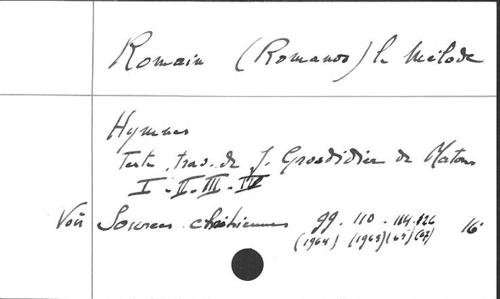 Romain (Romanos) le Mélode
Hymnes
Texte, trad. de J. Grosdidier de Matons
I - II - III - IV
Voir Sources chrétiennes 99 - 110 - 114 - 128 16
(1964) (1965) (65) (67)